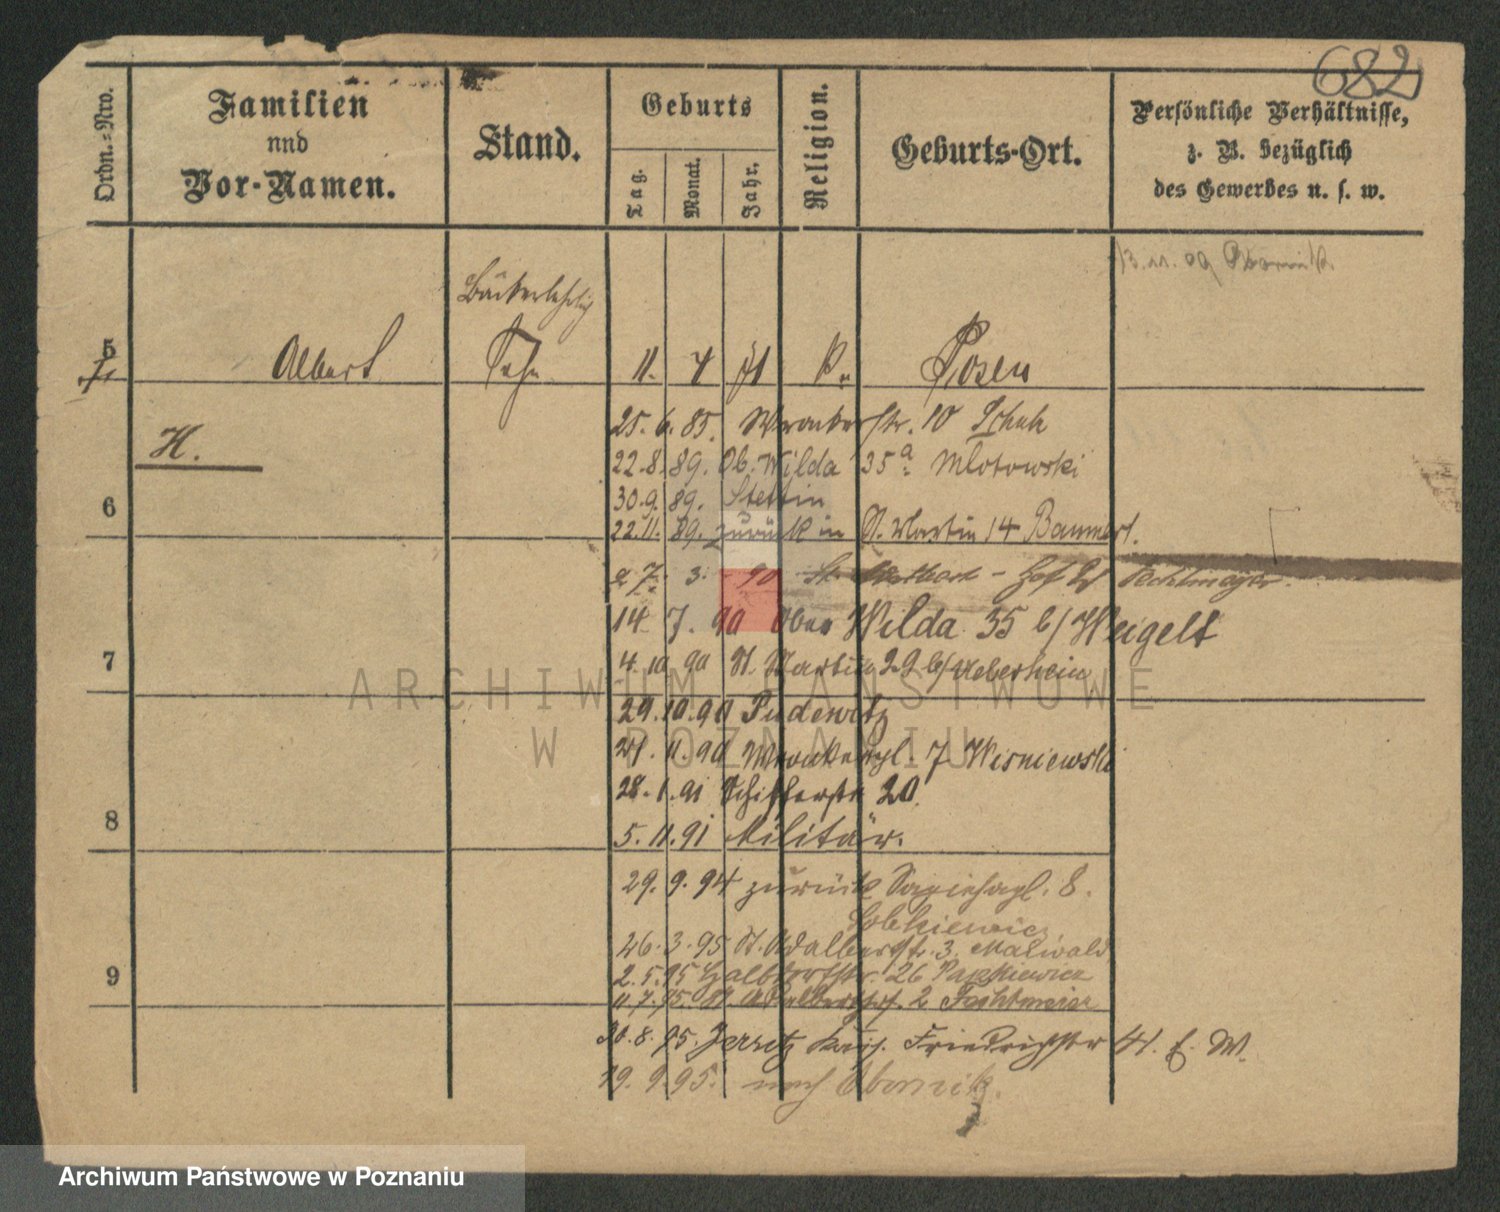 682
Ordn.-Nro.
Familien
und
Vor-Namen.
Stand.
Geburts
Tag.
Monat.
Jahr.
Religion.
Geburts-Ort.
Persönliche Verhältnisse,
z. B. bezüglich
des Gewerbes u. s. w.
13.11.09 Obornik
Bäckerlehrlg
5 Albert Sohn 11. 4 71 k. Posen
H.
25. 6. 85. Wronkerstr. 10 Schuh
22. 8. 89. Ob. Wilda 35a. Mlotowski
30. 9. 89. Stettin
6
22. 11. 89. zurück in St. Martin 14 Bammert.
7. 3. 90 St. Adalbert Hof
14 7. 90 Ober Wilda 35 b/ Weigelt
7
4. 10. 90 St. Martin 29 b/ Ueberhein
29. 10. 90 Pudewitz
11. 90 7 Wisniewski
28. 1. 91 20.
8
5. 11. 91 Militär.
29. 9. 94 zurück 8.
26. 3. 95 St. Adalbertstr. 3. Maiwald
9
2. 5. 95 Halbdorfstr. 26
11. 7. 95. St. Adalbertstr. 2
30. 8. 95. Jersitz Kais. Friedrichstr
19. 9 95. nach Obornik.
ARCHIWUM PAŃSTWOWE
W POZNANIU
Archiwum Państwowe w Poznaniu